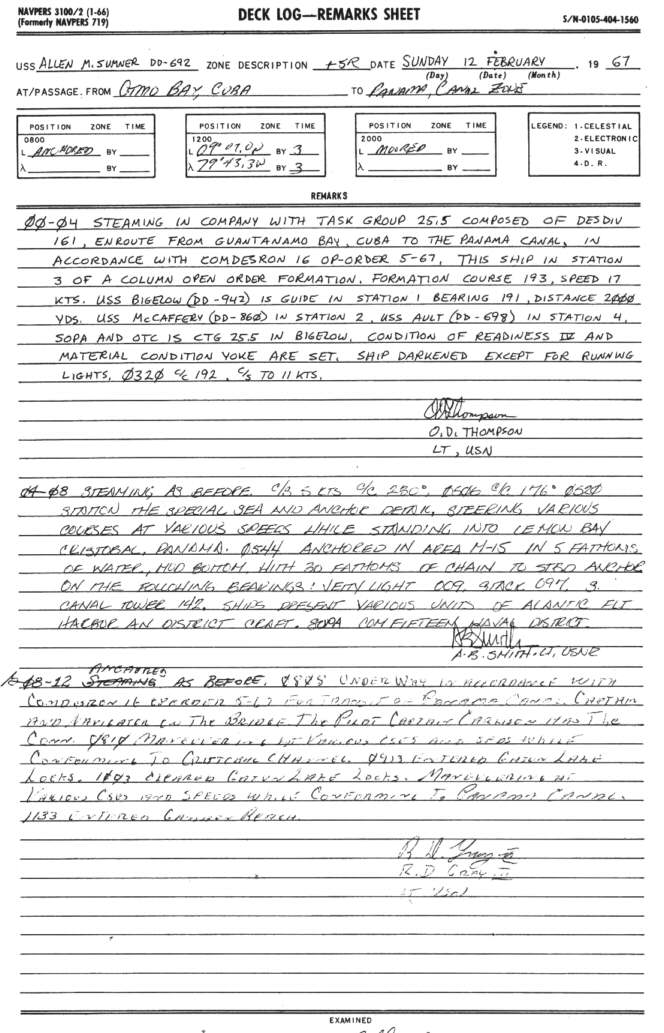 NAVPERS 3100/2 (1-66)
(Formerly NAVPERS 719)
DECK LOG—REMARKS SHEET
S/N-0105-404-1560
USS ALLEN M. SUMNER DD-692 ZONE DESCRIPTION +5R DATE SUNDAY 12 FEBRUARY, 19 67
(Day) (Date) (Month)
AT/PASSAGE FROM GTMO BAY, CUBA TO PANAMA, CANAL ZONE
POSITION ZONE TIME
0800
L ANCHORED BY
λ BY
POSITION ZONE TIME
1200
L 09° 07.0N BY 3
λ 79° 43.3W BY 3
POSITION ZONE TIME
2000
L MOORED BY
λ BY
LEGEND: 1-CELESTIAL
2-ELECTRONIC
3-VISUAL
4-D. R.
REMARKS
00-04 STEAMING IN COMPANY WITH TASK GROUP 25.5 COMPOSED OF DESDIV
161, ENROUTE FROM GUANTANAMO BAY, CUBA TO THE PANAMA CANAL, IN
ACCORDANCE WITH COMDESRON 16 OP-ORDER 5-67, THIS SHIP IN STATION
3 OF A COLUMN OPEN ORDER FORMATION. FORMATION COURSE 193, SPEED 17
KTS. USS BIGELOW (DD-942) IS GUIDE IN STATION 1 BEARING 191, DISTANCE 2000
YDS. USS McCAFFERY (DD-860) IN STATION 2, USS AULT (DD-698) IN STATION 4,
SOPA AND OTC IS CTG 25.5 IN BIGELOW, CONDITION OF READINESS IV AND
MATERIAL CONDITION YOKE ARE SET. SHIP DARKENED EXCEPT FOR RUNNING
LIGHTS, 0320 C/C 192, C/S TO 11 KTS.
O.D. Thompson
O.D. THOMPSON
LT, USN
04-08 STEAMING AS BEFORE. C/S 5 KTS C/C 250°, 0506 C/C 176° 0520
STATION THE SPECIAL SEA AND ANCHOR DETAIL, STEERING VARIOUS
COURSES AT VARIOUS SPEEDS WHILE STANDING INTO LEMON BAY
CRISTOBAL, PANAMA. 0544 ANCHORED IN AREA M-15 IN 5 FATHOMS
OF WATER, MUD BOTTOM, WITH 30 FATHOMS OF CHAIN TO STBD ANCHOR
ON THE FOLLOWING BEARINGS: LIGHT 009, STACK 097, 3.
CANAL TOWER 142. SHIPS PRESENT VARIOUS UNITS OF ALANTIC FLT
HARBOR AN DISTRICT CRAFT. SOPA COM FIFTEEN NAVAL DISTRICT.
A.B. Smith
A.B. SMITH, LT, USNR
08-12 STEAMING ANCHORED AS BEFORE. 0805 UNDERWAY IN ACCORDANCE WITH
COMDESRON 16 OPORDER 5-67 FOR TRANSIT OF PANAMA CANAL. CAPTAIN
AND NAVIGATOR ON THE BRIDGE. THE PILOT CAPTAIN HAS THE
CONN. 0810 MANEUVERING AT VARIOUS CSES AND SPDS WHILE
CONFORMING TO CHANNEL. 0913 ENTERED GATUN LAKE
LOCKS. 1003 CLEARED GATUN LAKE LOCKS. MANEUVERING AT
VARIOUS CSES AND SPEEDS WHILE CONFORMING TO PANAMA CANAL.
1133 ENTERED REACH.
R.D.
LT USN
EXAMINED